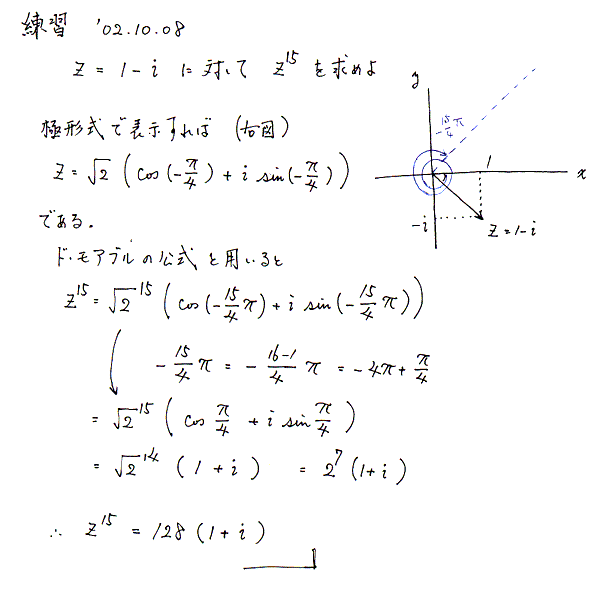 練習 '02.10.08
z = 1 - i に対して z^15 を求めよ
極形式で表示すれば (右図)
z = √2 ( cos(-π/4) + i sin(-π/4) )
である.
ド・モアブルの公式を用いると
z^15 = √2^15 ( cos(-15/4 π) + i sin(-15/4 π) )
-15/4 π = -(16-1)/4 π = -4π + π/4
= √2^15 ( cos π/4 + i sin π/4 )
= √2^14 (1 + i) = 2^7 (1+i)
∴ z^15 = 128 (1 + i)
y
-15/4 π
1
x
-i
z = 1-i